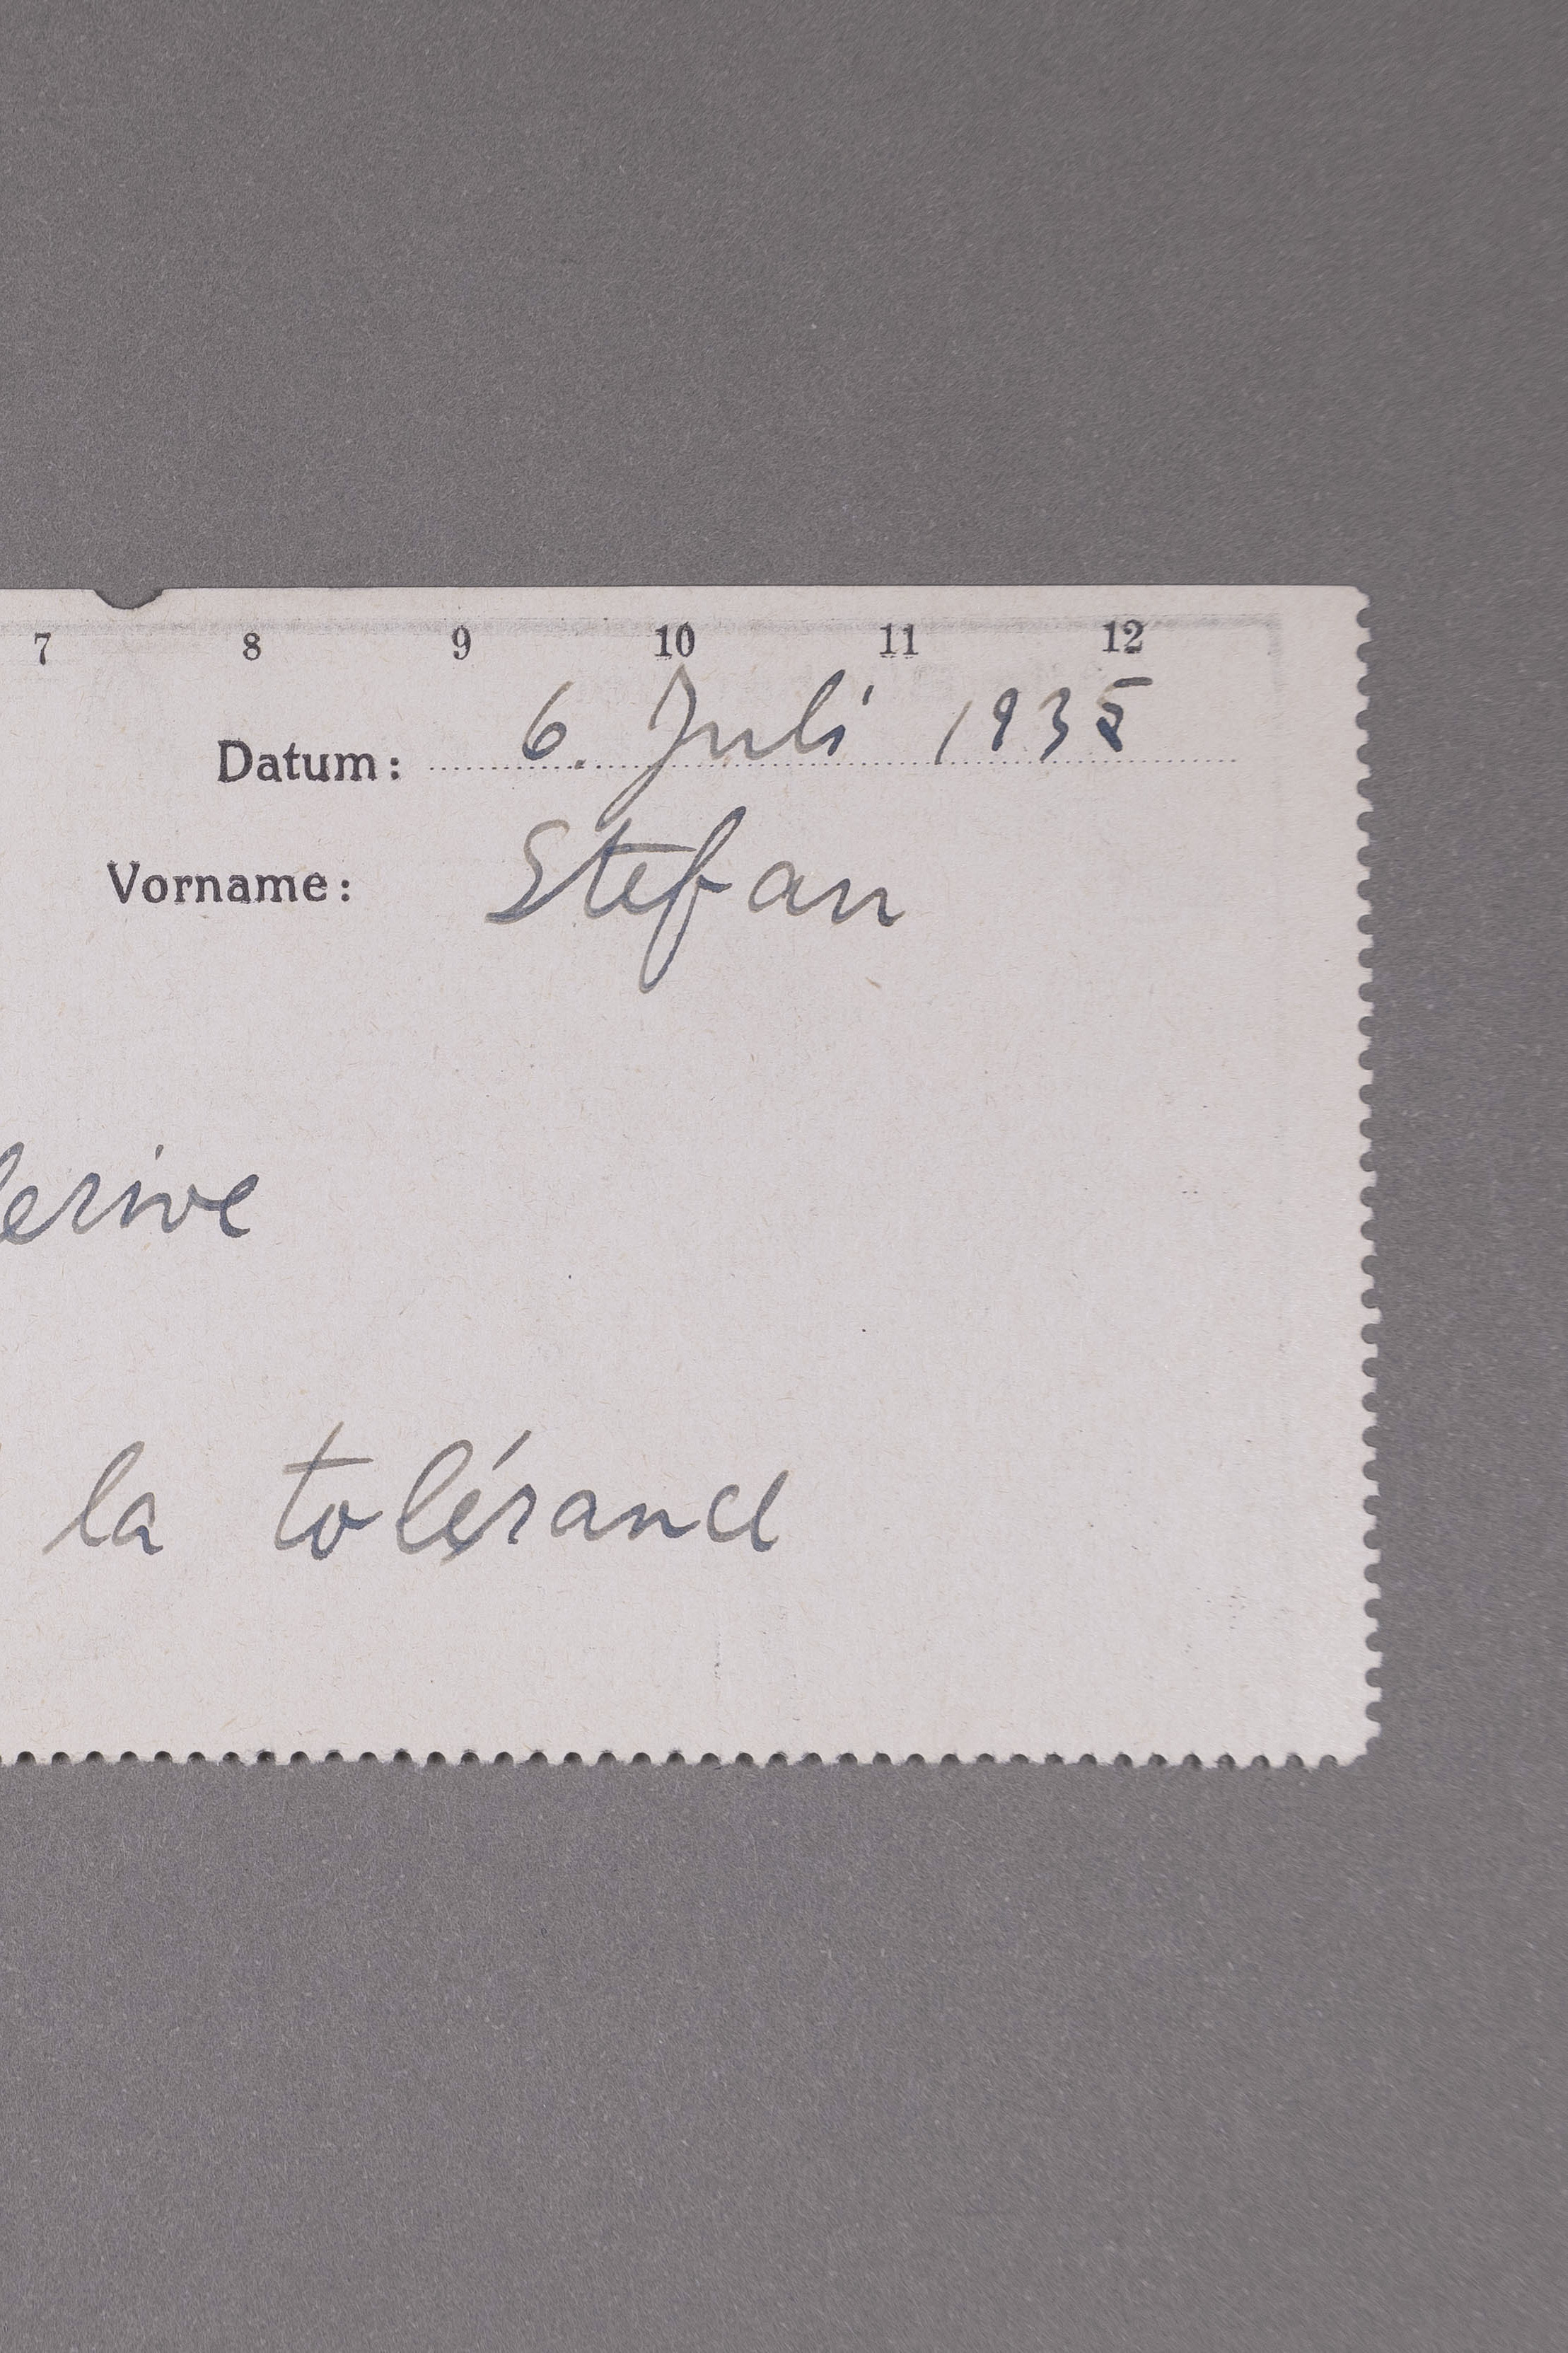 7 8 9 10 11 12
Datum: 6. Juli 1935
Vorname: Stefan
la tolérance